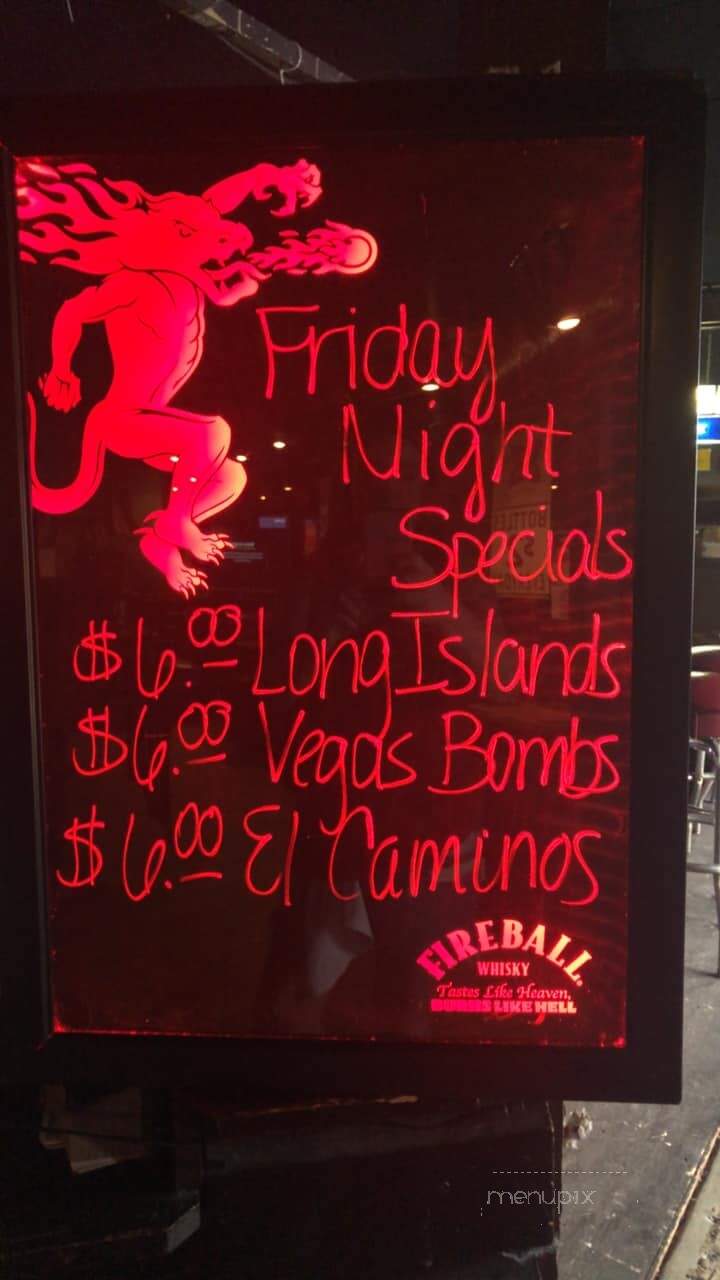 Friday
Night
Specials
$6.00 Long Islands
$6.00 Vegas Bombs
$6.00 El Caminos
FIREBALL
WHISKY
Tastes Like Heaven,
BURNS LIKE HELL
menupix